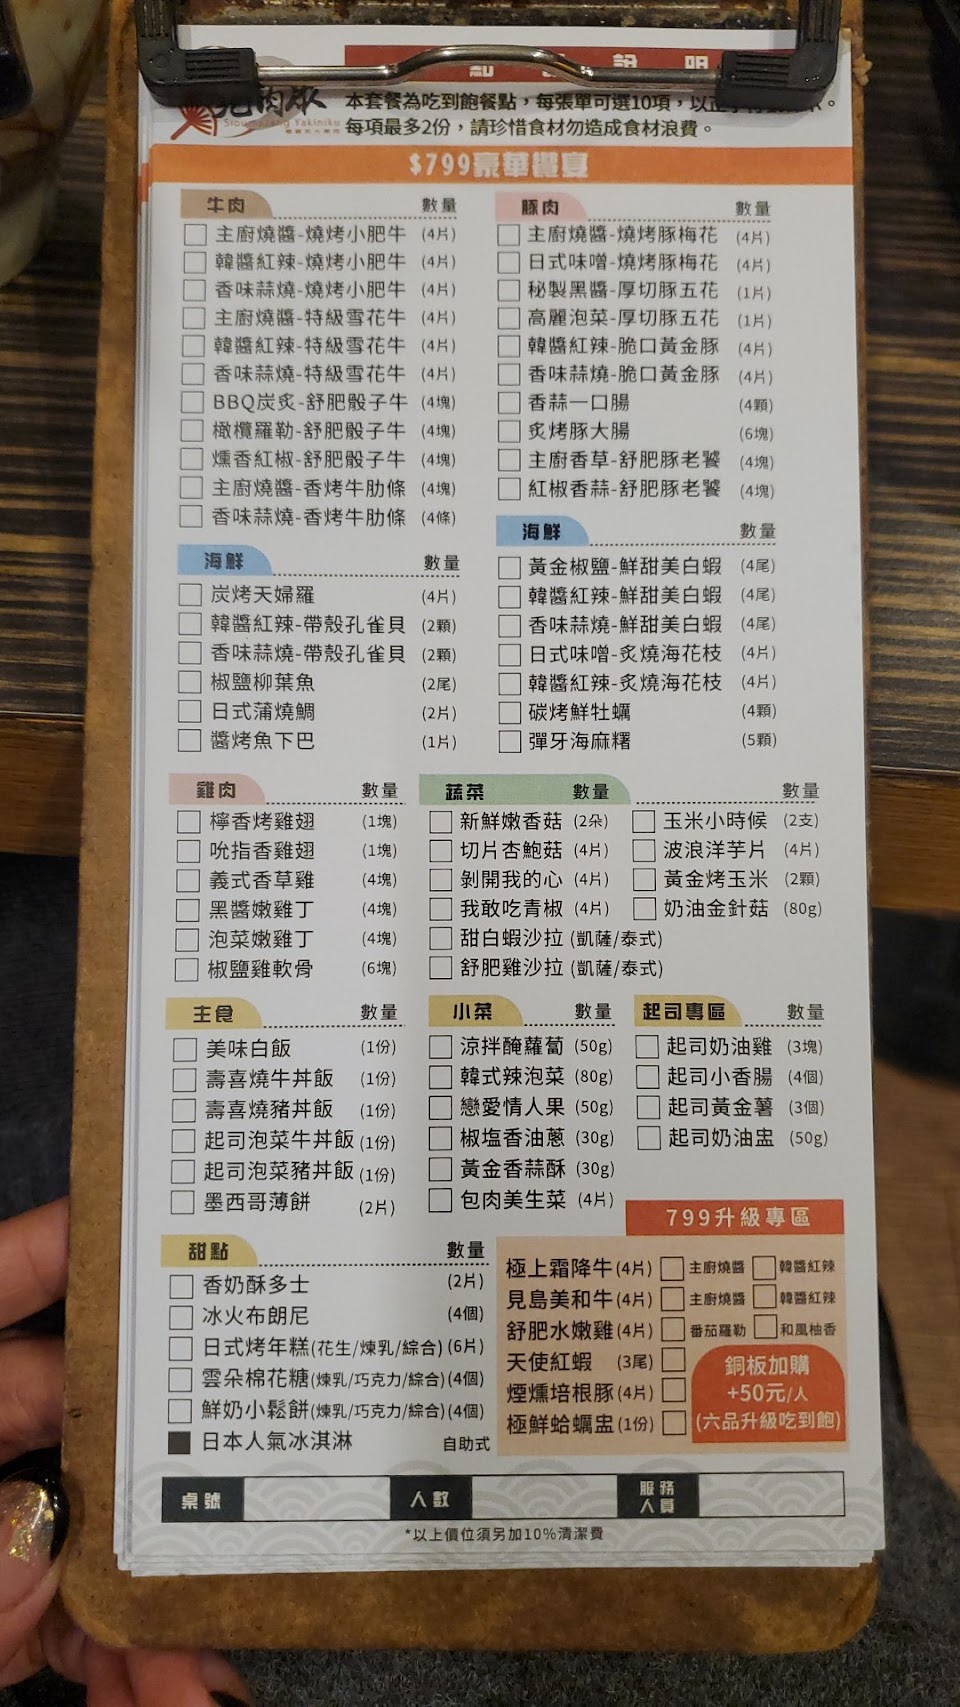 本套餐為吃到飽餐點，每張單可選10項，以
每項最多2份，請珍惜食材勿造成食材浪費。
燒肉眾
Yakiniku
$799豪華饗宴
牛肉 數量
主廚燒醬-燒烤小肥牛 (4片)
韓醬紅辣-燒烤小肥牛 (4片)
香味蒜燒-燒烤小肥牛 (4片)
主廚燒醬-特級雪花牛 (4片)
韓醬紅辣-特級雪花牛 (4片)
香味蒜燒-特級雪花牛 (4片)
BBQ炭炙-舒肥骰子牛 (4塊)
橄欖羅勒-舒肥骰子牛 (4塊)
燻香紅椒-舒肥骰子牛 (4塊)
主廚燒醬-香烤牛肋條 (4塊)
香味蒜燒-香烤牛肋條 (4條)
豚肉 數量
主廚燒醬-燒烤豚梅花 (4片)
日式味噌-燒烤豚梅花 (4片)
秘製黑醬-厚切豚五花 (1片)
高麗泡菜-厚切豚五花 (1片)
韓醬紅辣-脆口黃金豚 (4片)
香味蒜燒-脆口黃金豚 (4片)
香蒜一口腸 (4顆)
炙烤豚大腸 (6塊)
主廚香草-舒肥豚老饕 (4塊)
紅椒香蒜-舒肥豚老饕 (4塊)
海鮮 數量
炭烤天婦羅 (4片)
韓醬紅辣-帶殼孔雀貝 (2顆)
香味蒜燒-帶殼孔雀貝 (2顆)
椒鹽柳葉魚 (2尾)
日式蒲燒鯛 (2片)
醬烤魚下巴 (1片)
海鮮 數量
黃金椒鹽-鮮甜美白蝦 (4尾)
韓醬紅辣-鮮甜美白蝦 (4尾)
香味蒜燒-鮮甜美白蝦 (4尾)
日式味噌-炙燒海花枝 (4片)
韓醬紅辣-炙燒海花枝 (4片)
碳烤鮮牡蠣 (4顆)
彈牙海麻糬 (5顆)
雞肉 數量
檸香烤雞翅 (1塊)
吮指香雞翅 (1塊)
義式香草雞 (4塊)
黑醬嫩雞丁 (4塊)
泡菜嫩雞丁 (4塊)
椒鹽雞軟骨 (6塊)
蔬菜 數量 數量
新鮮嫩香菇 (2朵) 玉米小時候 (2支)
切片杏鮑菇 (4片) 波浪洋芋片 (4片)
剝開我的心 (4片) 黃金烤玉米 (2顆)
我敢吃青椒 (4片) 奶油金針菇 (80g)
甜白蝦沙拉 (凱薩/泰式)
舒肥雞沙拉 (凱薩/泰式)
主食 數量
美味白飯 (1份)
壽喜燒牛丼飯 (1份)
壽喜燒豬丼飯 (1份)
起司泡菜牛丼飯 (1份)
起司泡菜豬丼飯 (1份)
墨西哥薄餅 (2片)
小菜 數量
涼拌醃蘿蔔 (50g)
韓式辣泡菜 (80g)
戀愛情人果 (50g)
椒塩香油蔥 (30g)
黃金香蒜酥 (30g)
包肉美生菜 (4片)
起司專區 數量
起司奶油雞 (3塊)
起司小香腸 (4個)
起司黃金薯 (3個)
起司奶油盅 (50g)
甜點 數量
香奶酥多士 (2片)
冰火布朗尼 (4個)
日式烤年糕(花生/煉乳/綜合) (6片)
雲朵棉花糖(煉乳/巧克力/綜合) (4個)
鮮奶小鬆餅(煉乳/巧克力/綜合) (4個)
日本人氣冰淇淋 自助式
799升級專區
極上霜降牛 (4片) 主廚燒醬 韓醬紅辣
見島美和牛 (4片) 主廚燒醬 韓醬紅辣
舒肥水嫩雞 (4片) 番茄羅勒 和風柚香
天使紅蝦 (3尾)
煙燻培根豚 (4片)
極鮮蛤蠣盅 (1份)
銅板加購
+50元/人
(六品升級吃到飽)
桌號 人數 服務人員
*以上價位須另加10%清潔費